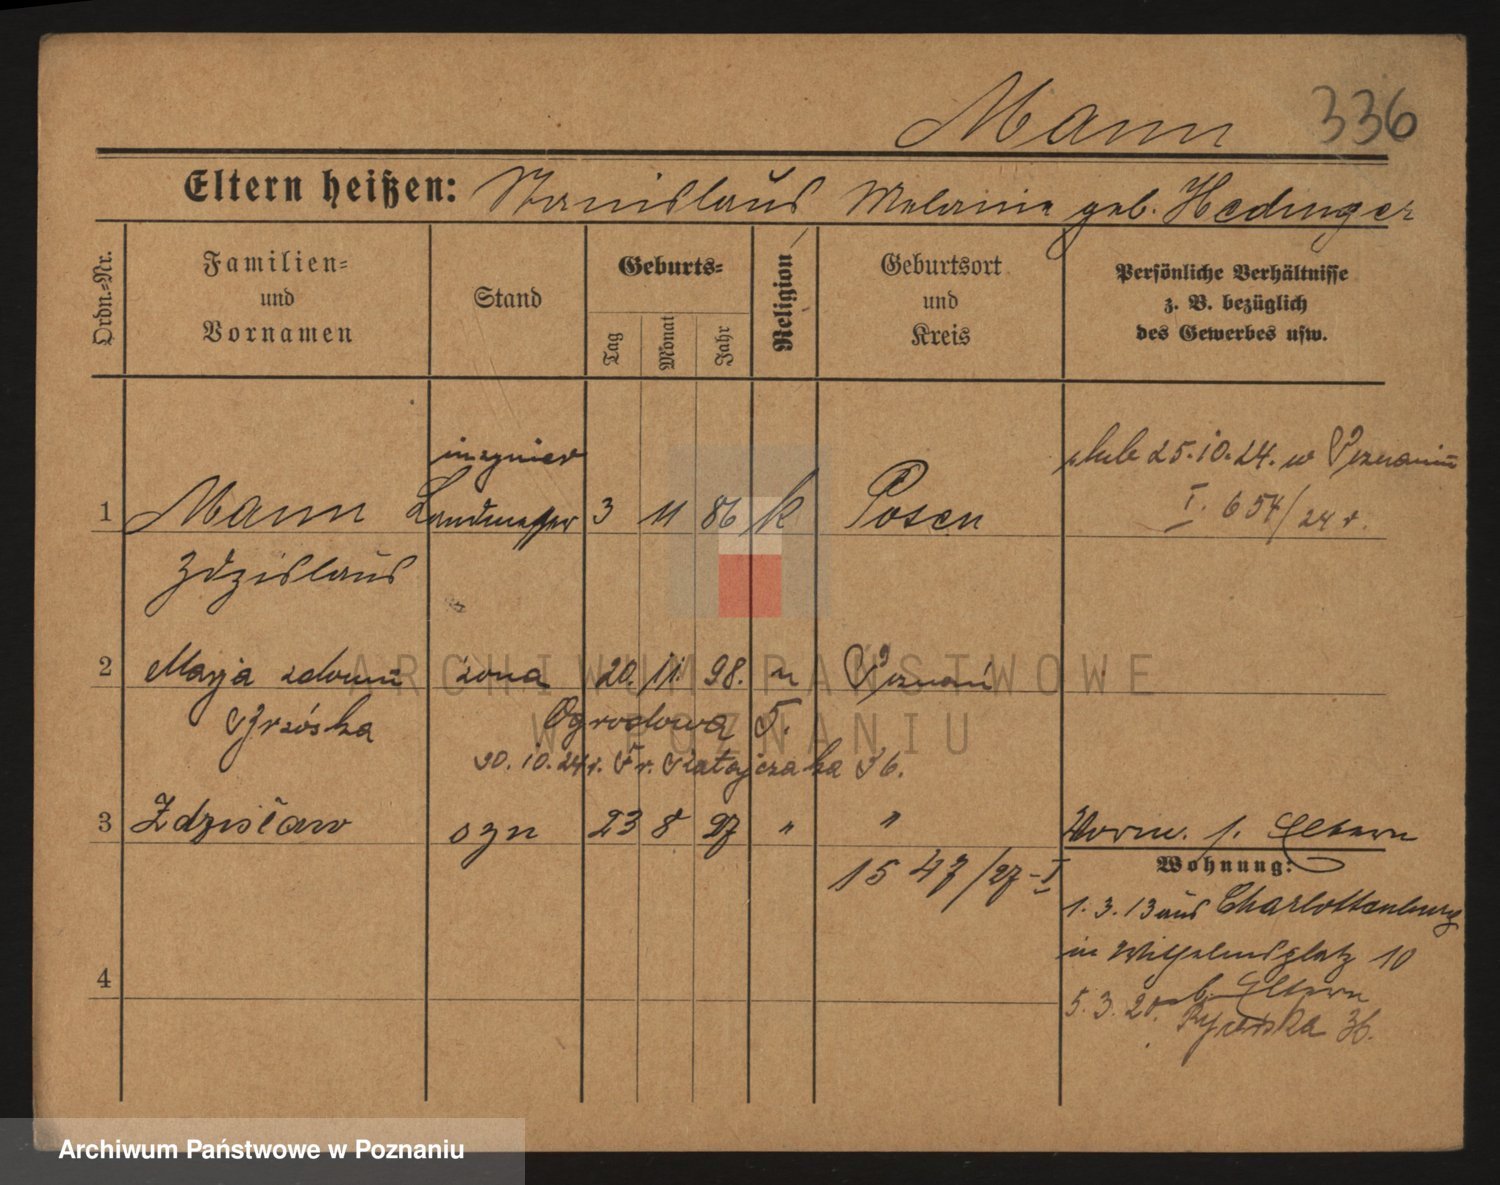 Mann 336
Eltern heißen: Stanislaus Melanie geb. Hedinger
Ordn.=Nr.
Familien=
und
Vornamen
Stand
Geburts=
Tag
Monat
Jahr
Religion
Geburtsort
und
Kreis
Persönliche Verhältnisse
z. B. bezüglich
des Gewerbes usw.
inzynier
ślub 25.10.24. w Poznaniu
1 Mann Landmesser 3 11 86 k Posen
I. 654/24 r.
Zdzislaus
2 Marja z domu żona 20. 11. 98. " Poznań
Brzóska Ogrodowa 5.
30.10.24 r. Fr. Ratajczaka 36.
3 Zdzisław syn 23 8 27 " "
Vorm. s. Eltern
1547/27-I
Wohnung:
1.3.13 aus Charlottenburg
in Wilhelmsplatz 10
4
5.3.20. b. Eltern
36.
ARCHIWUM PAŃSTWOWE
W POZNANIU
Archiwum Państwowe w Poznaniu